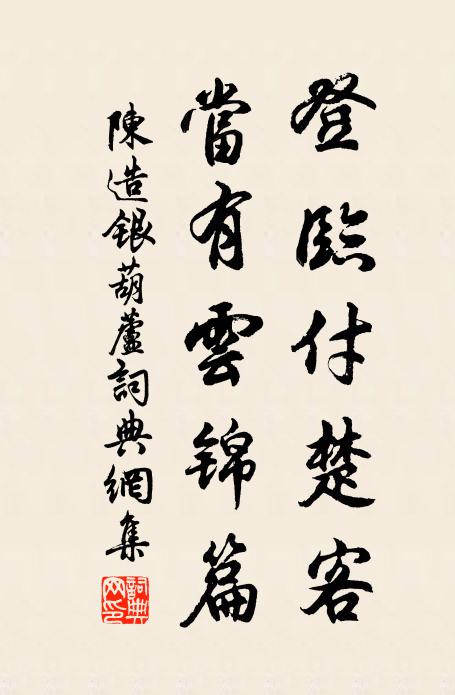 登臨付楚客
當有雲錦篇
陳造銀葫蘆詞典網集
詞典
网印